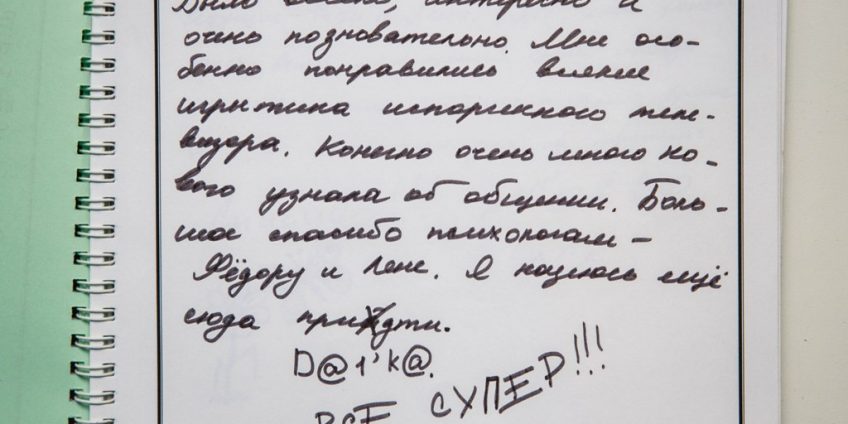 Было весело, интересно и
очень позновательно. Мне осо-
бенно понравились всякие
игры типа испорченного теле-
визора. Конечно очень много но-
вого узнала об общении. Боль-
шое спасибо психологам –
Фёдору и Лене. Я надеюсь ещё
сюда прийдти.
D@1'k@.
ВСЕ СУПЕР!!!